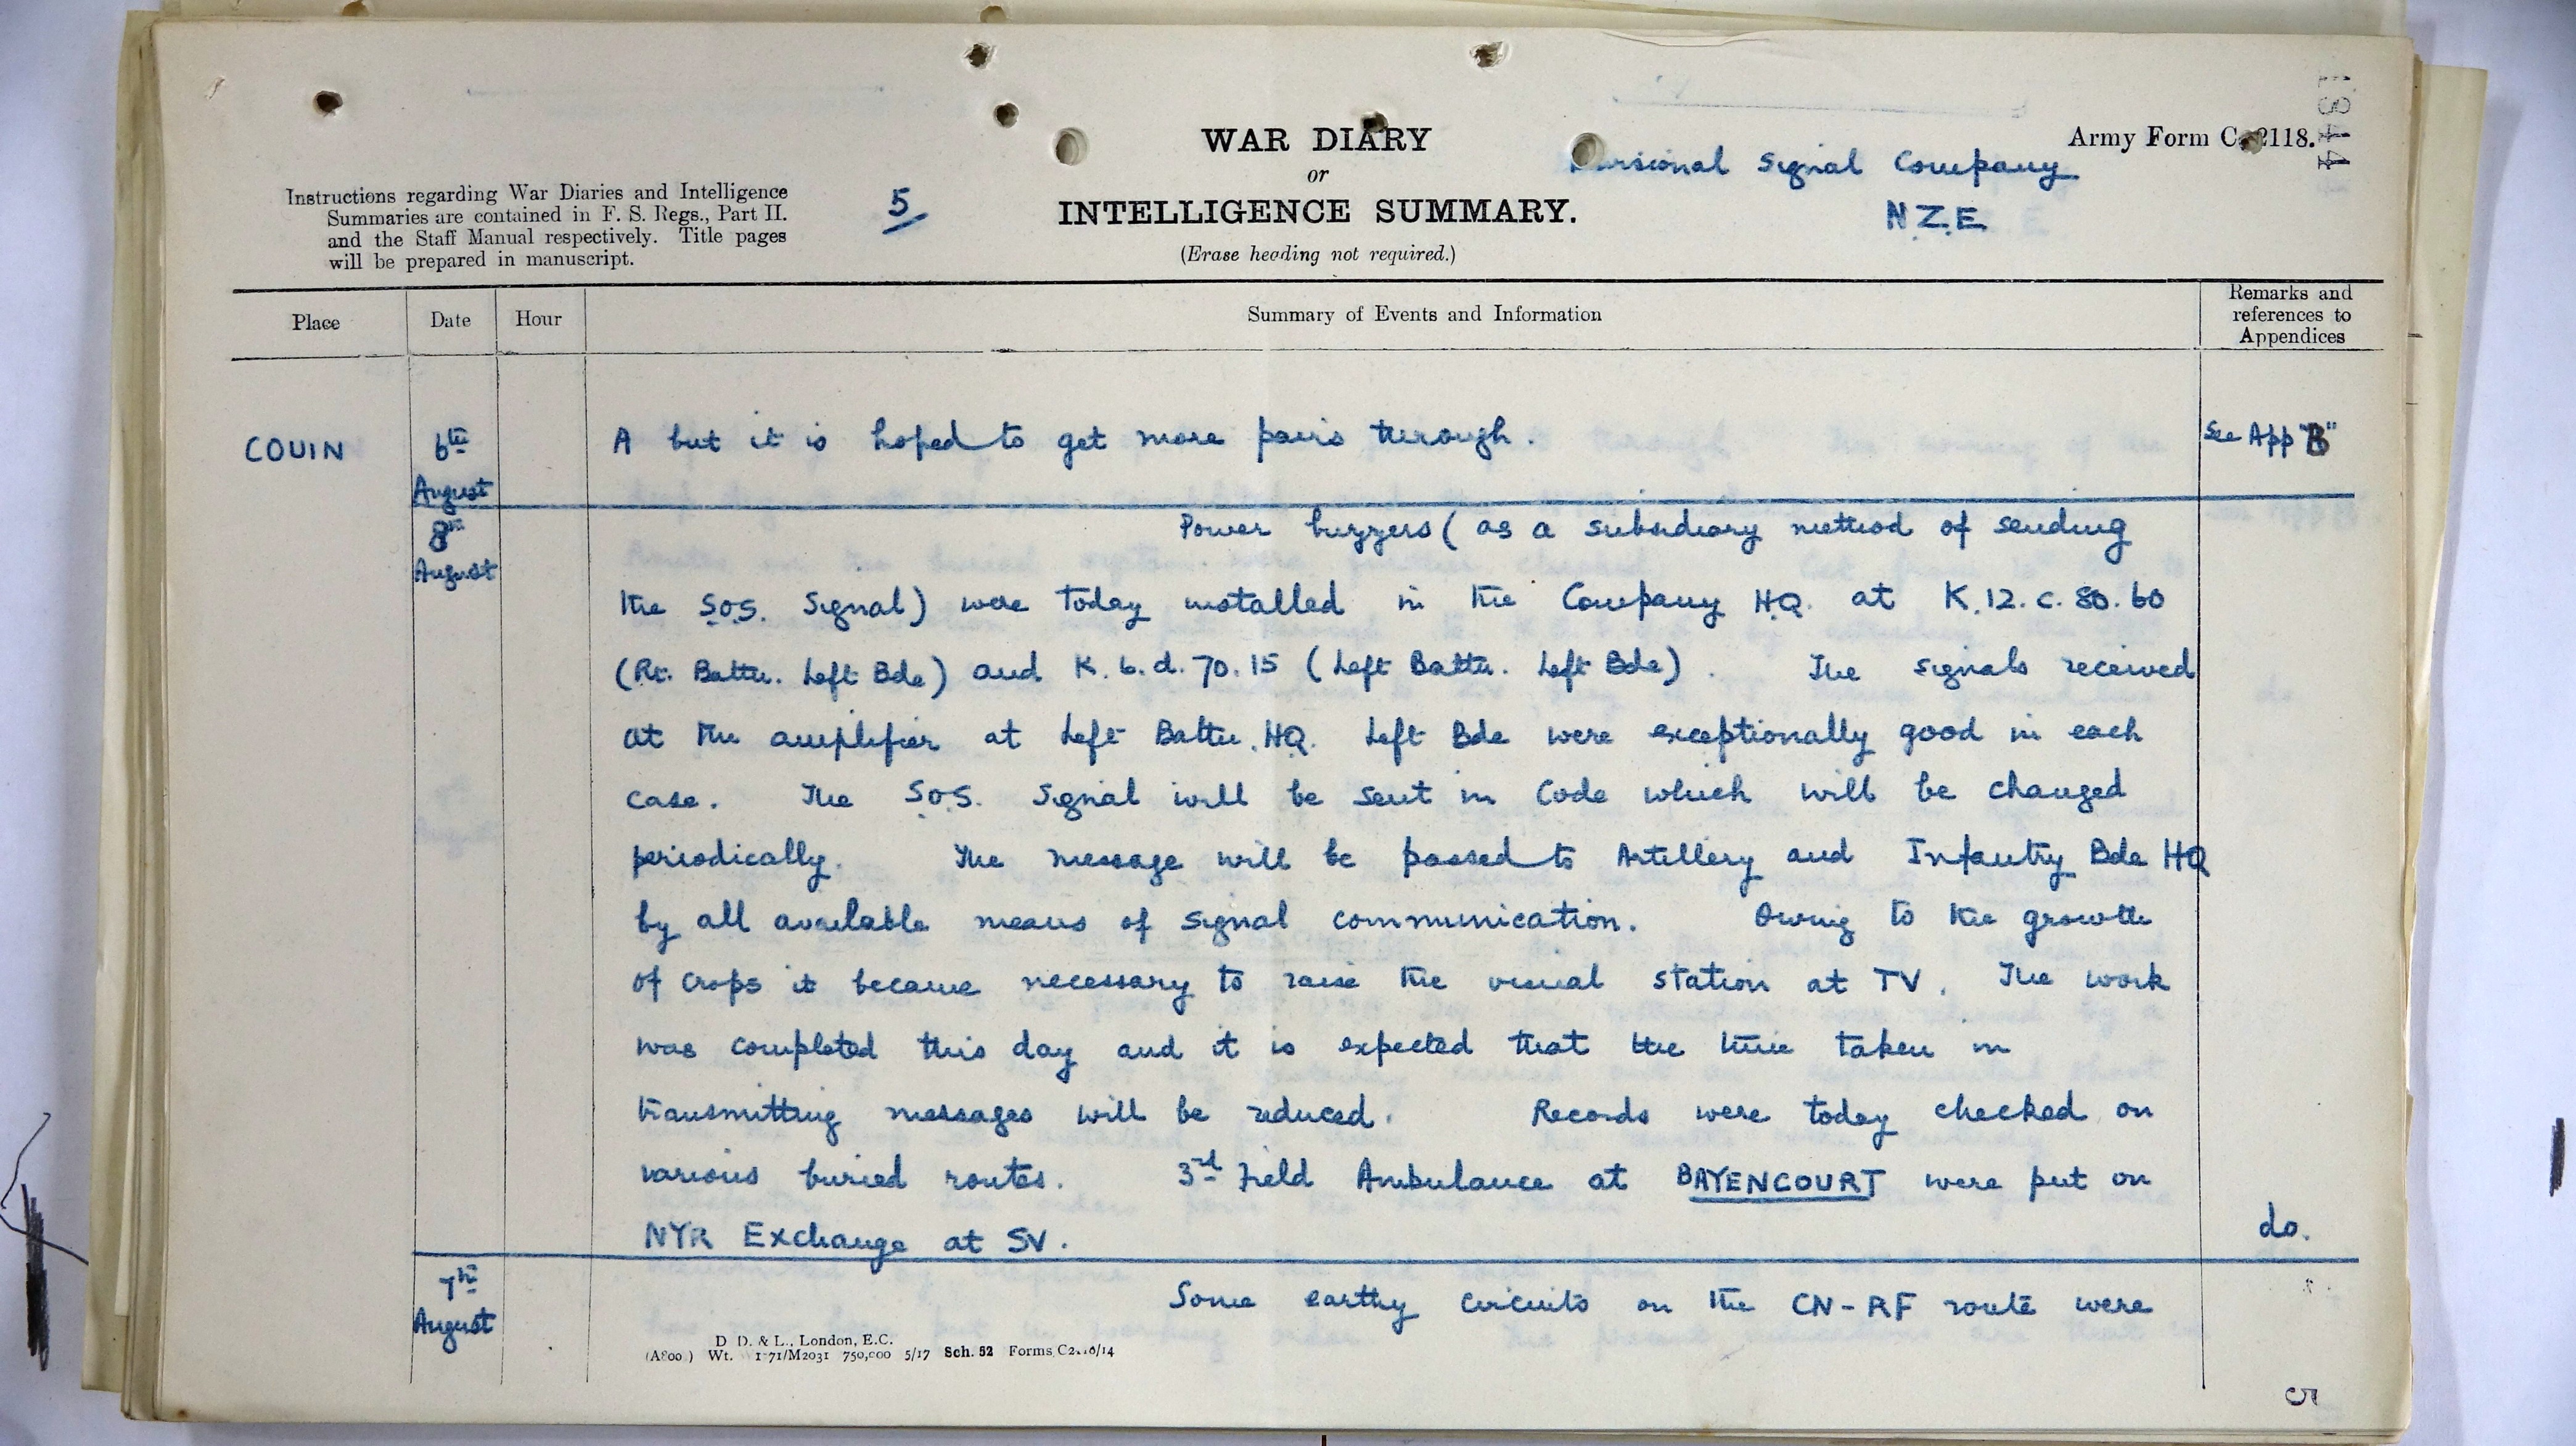 WAR DIARY
or
INTELLIGENCE SUMMARY.
(Erase heading not required.)
Army Form C. 2118.
Signal Company
N.Z.E
Instructions regarding War Diaries and Intelligence
Summaries are contained in F. S. Regs., Part II.
and the Staff Manual respectively. Title pages
will be prepared in manuscript.
5
Place
Date
Hour
Summary of Events and Information
Remarks and
references to
Appendices
COUIN
6th
August
A but it is hoped to get more pairs through.
See App "B"
8th
August
Power buzzers (as a subsidiary method of sending
the S.O.S. Signal) were today installed in the Company H.Q. at K.12.c.80.60
(Rt. Battn. Left Bde) and K.6.d.70.15 (Left Battn. Left Bde). The signals received
at the amplifier at Left Battn. H.Q. Left Bde were exceptionally good in each
case. The S.O.S. Signal will be sent in Code which will be changed
periodically. The message will be passed to Artillery and Infantry Bde HQ
by all available means of signal communication. Owing to the growth
of crops it became necessary to raise the visual station at TV. The work
was completed this day and it is expected that the time taken in
transmitting messages will be reduced. Records were today checked on
various buried routes. 3rd Field Ambulance at BAYENCOURT were put on
NYR Exchange at SV.
do.
7th
August
Some earthy circuits on the CN-RF route were
D. D. & L., London, E.C.
Wt. 750,000 5/17 Sch. 52 Forms
5